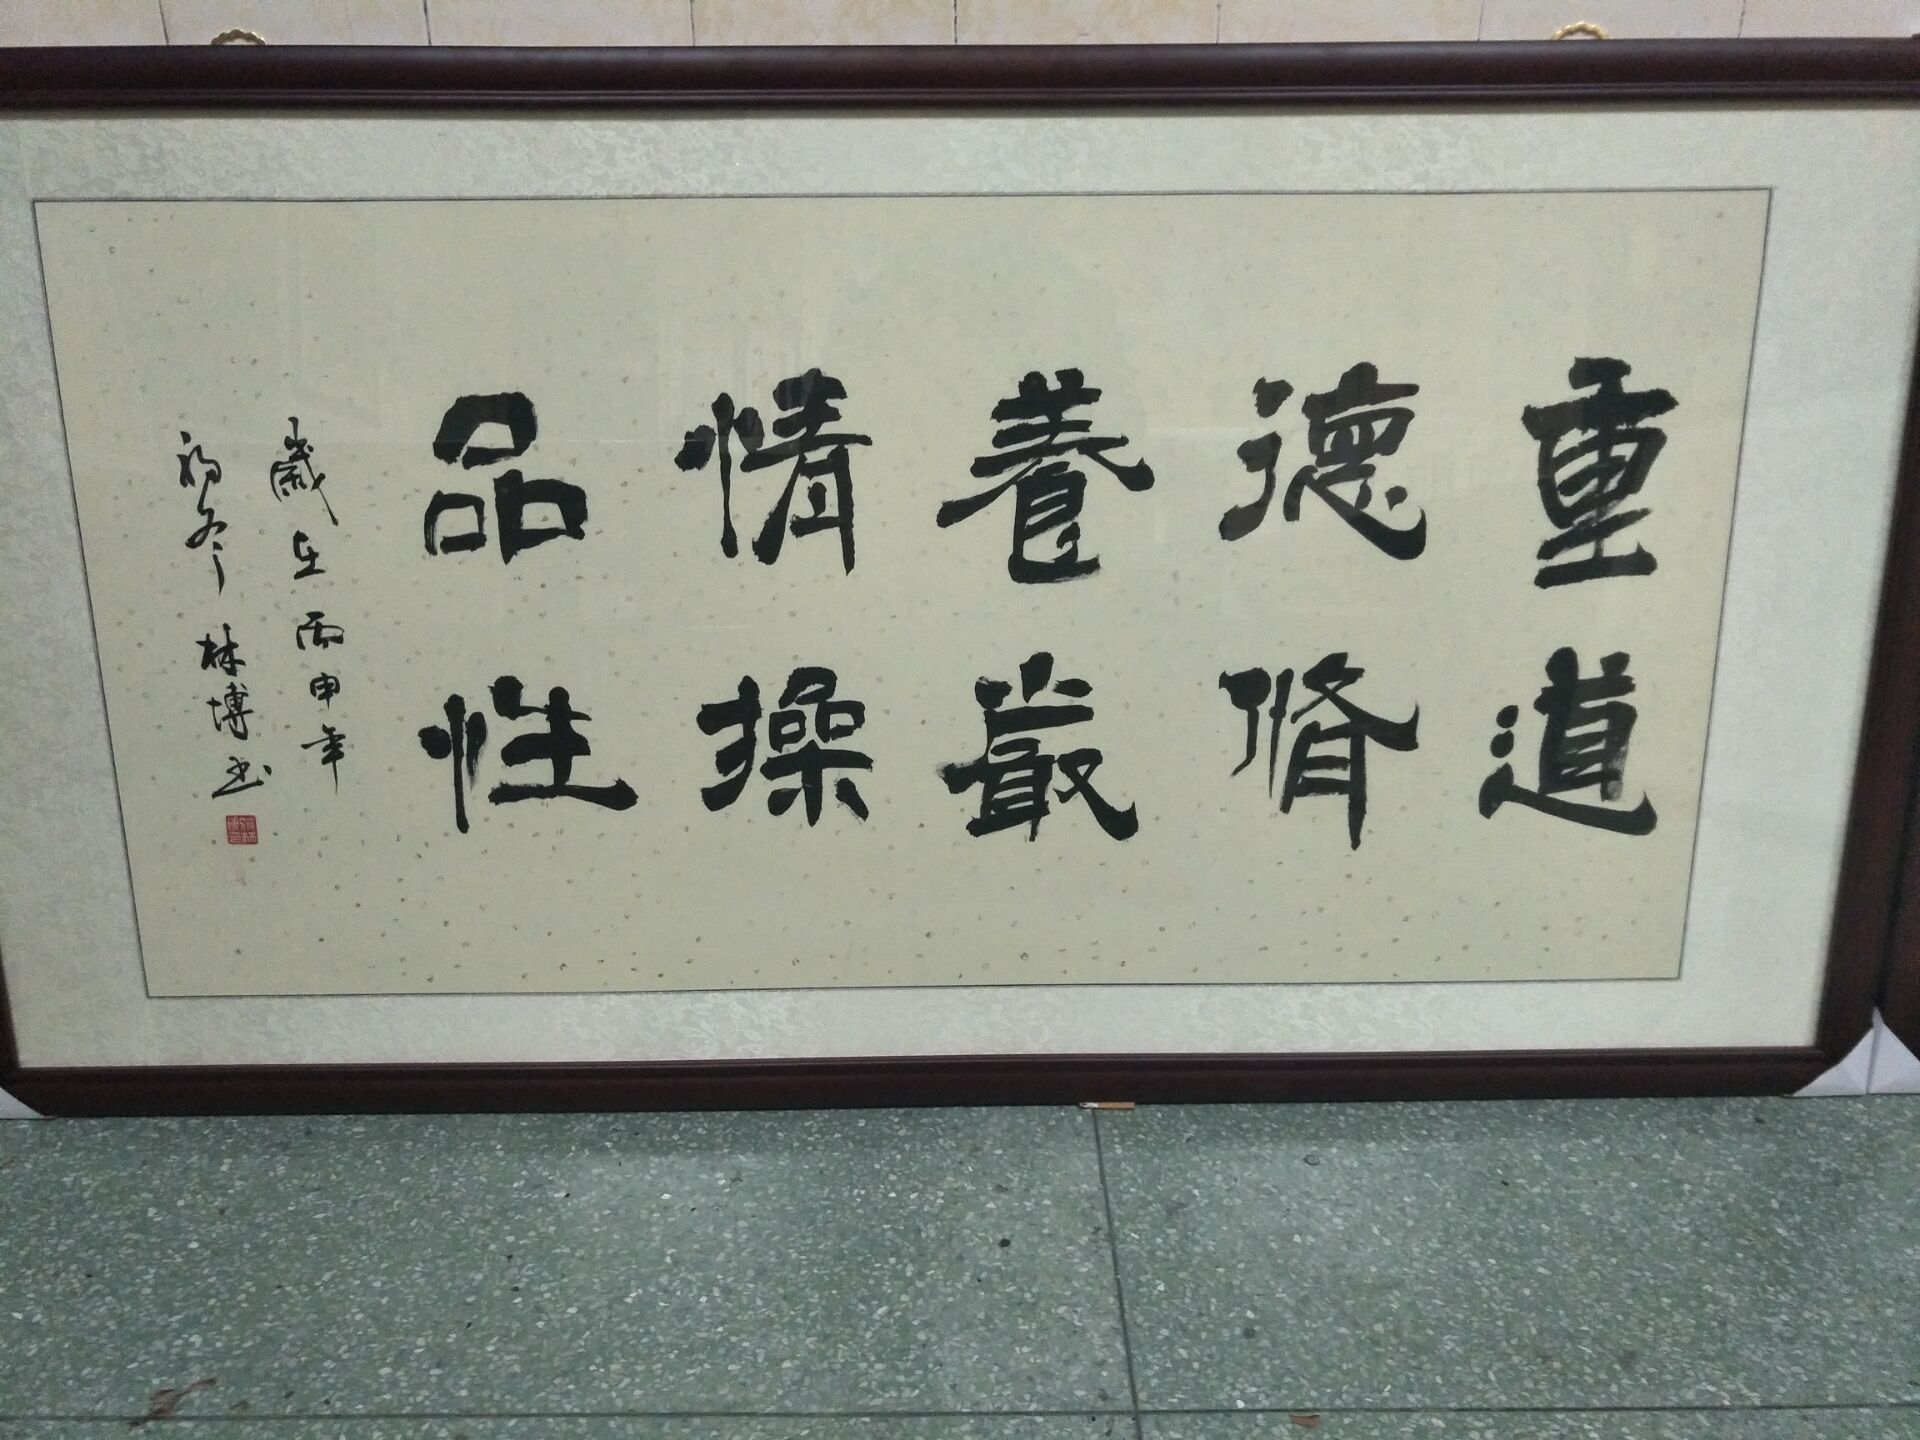 重道
德脩
養嚴
情操
品性
歲在丙申年
初冬林博书